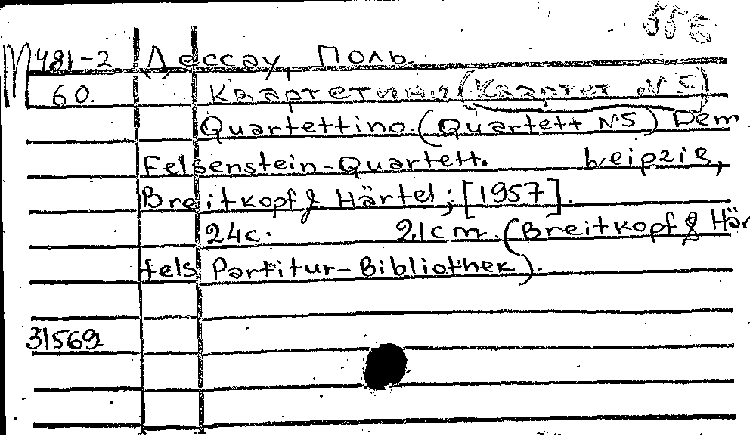 556
М481-2 Дессау, Поль.
60. Квартетино (Квартет N 5)
Quartettino. (Quartett N5) Dem
Felsenstein-Quartett. Leipzig,
Breitkopf & Härtel; [1957].
24c. 21cm. (Breitkopf & Här
tels Partitur-Bibliothek).
31569